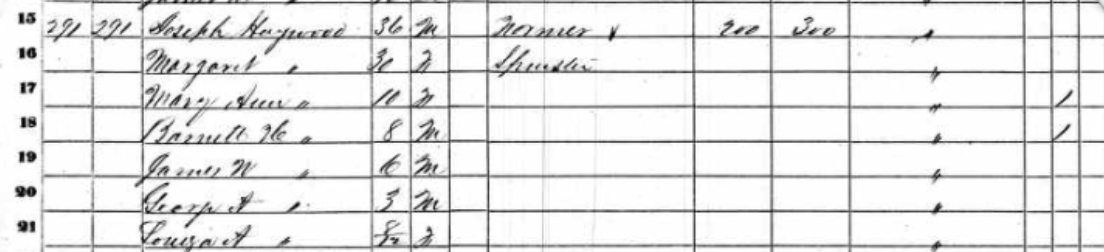 15 291 291 Joseph Haywood 36 M Farmer 200 300 "
16 Margaret " 30 F Spinster "
17 Mary Ann " 10 F " /
18 Barnett H " 8 M " /
19 James W " 6 M "
20 George A " 3 M "
21 Louiza A " 8/12 F "